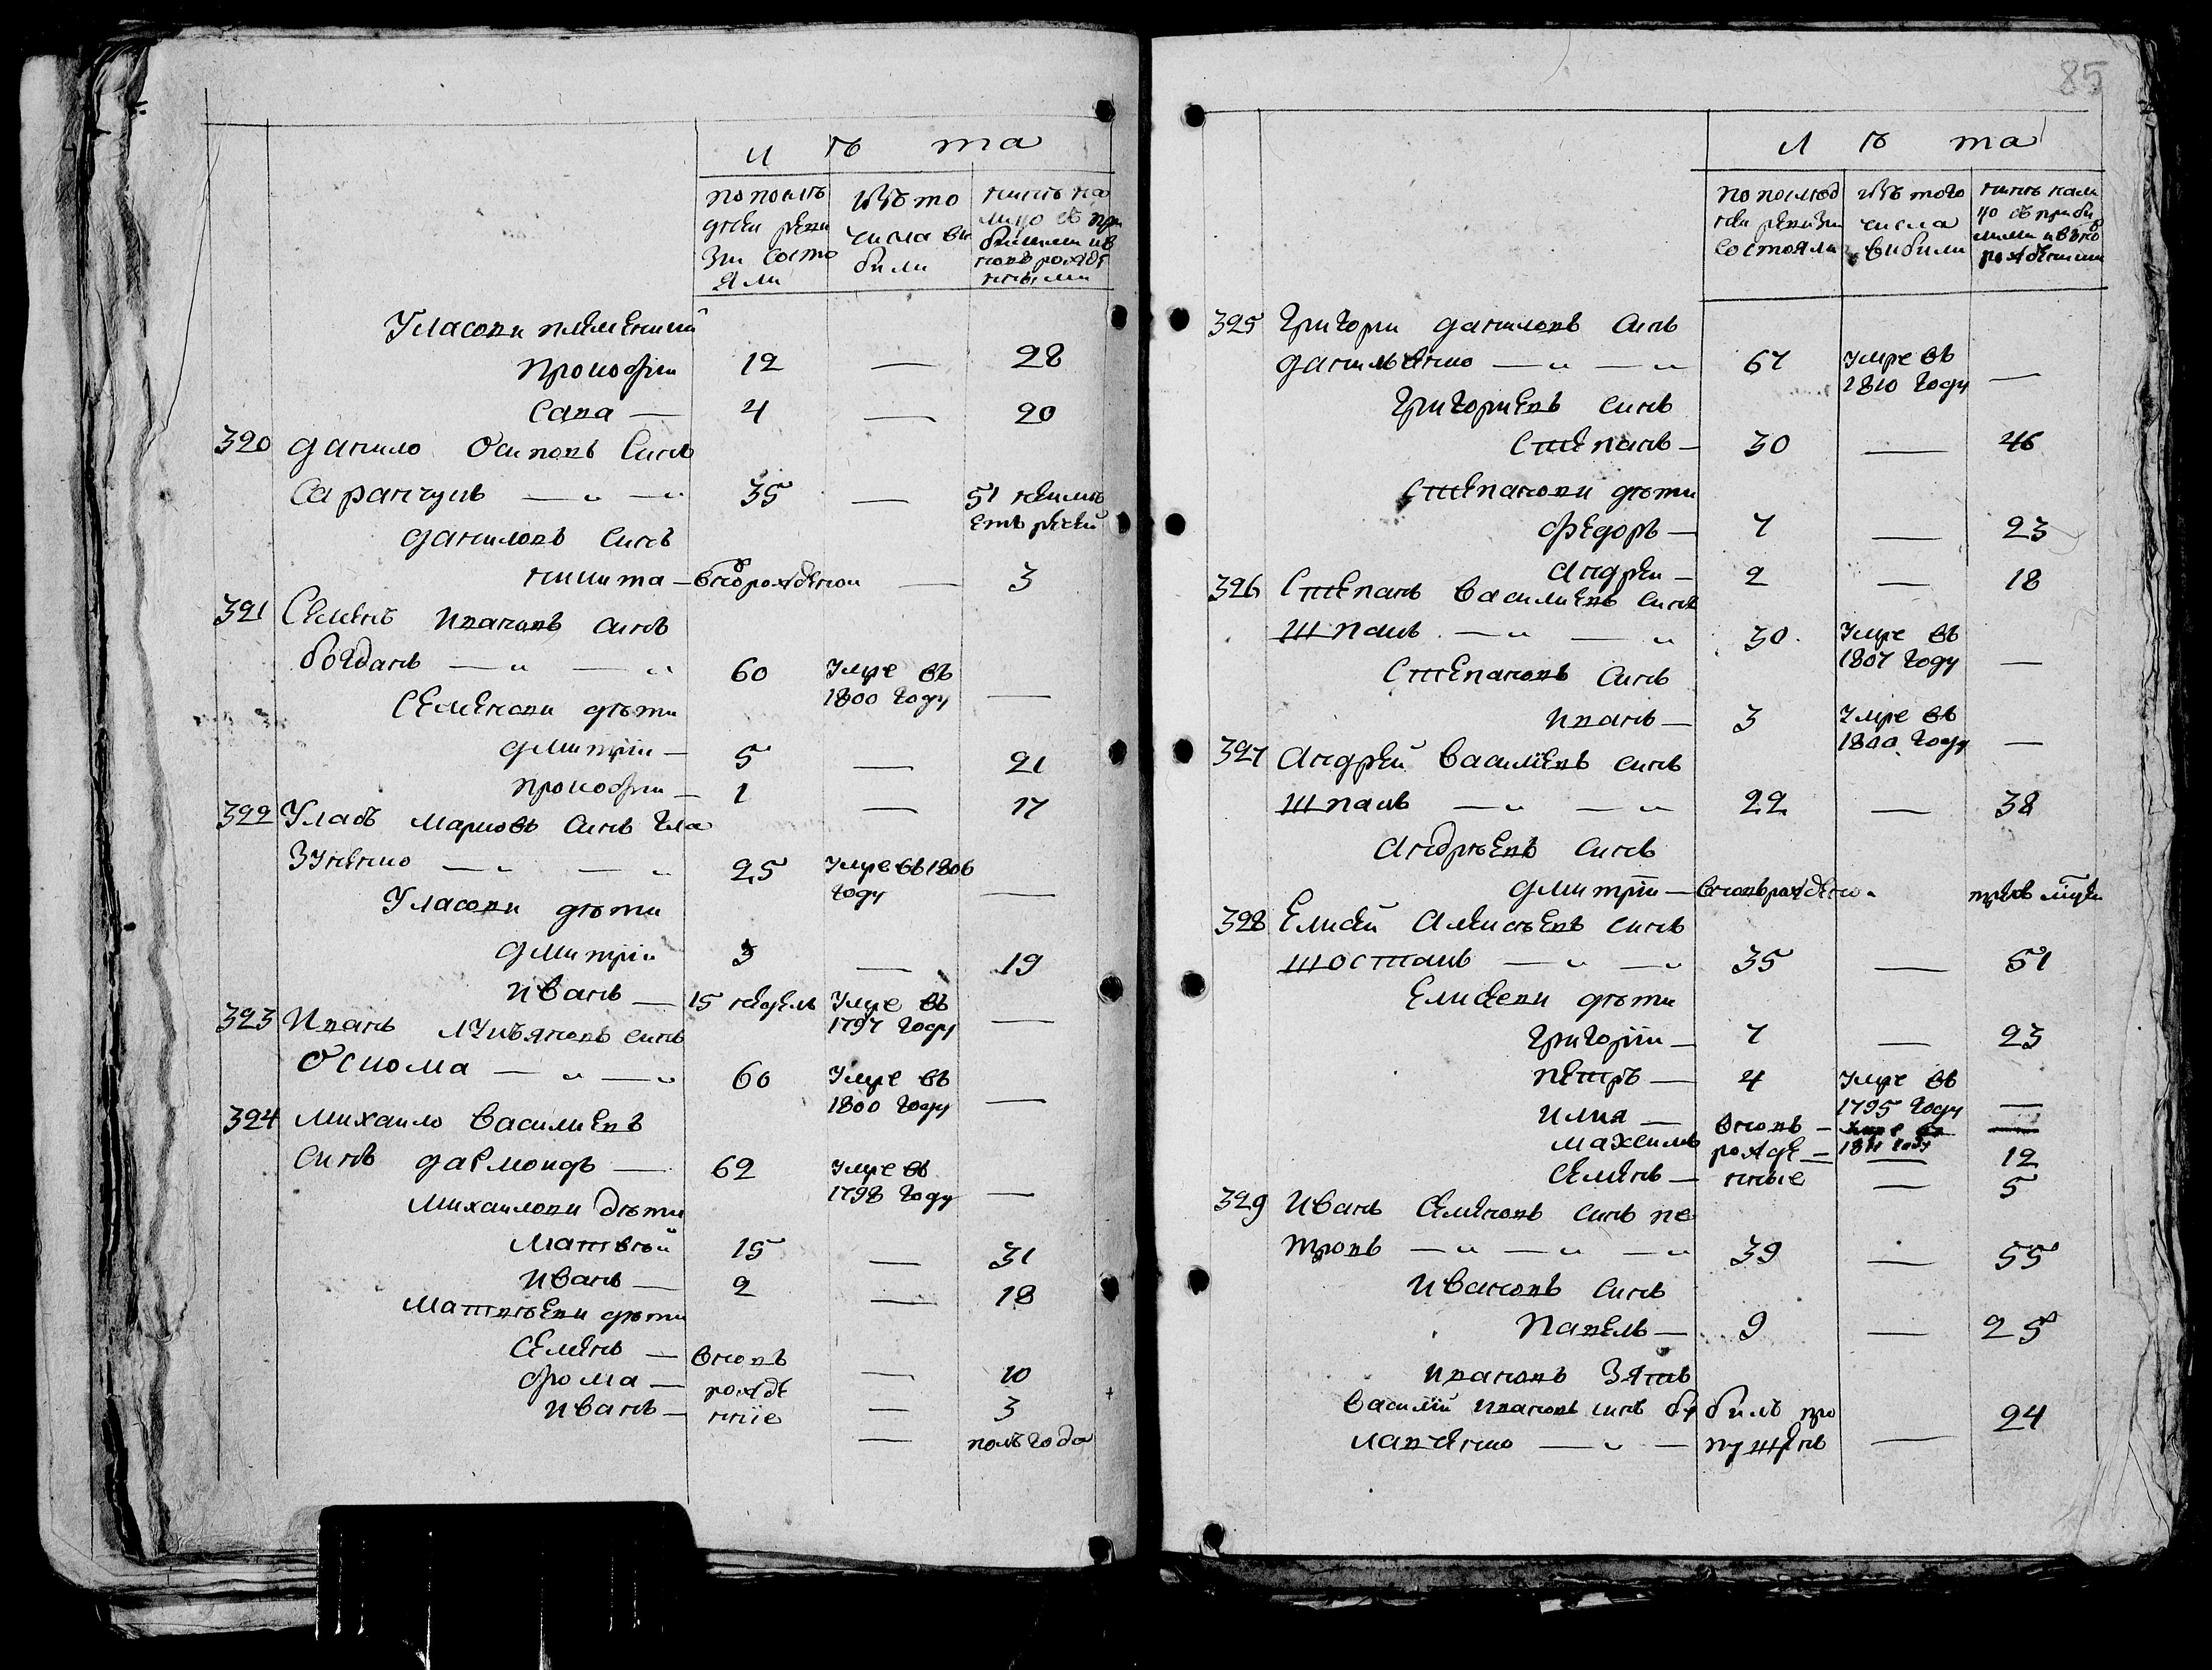 Лѣта
по послѣ
дней реви
зіи состо
яли
изъ то
числа ви
били
нинѣ на
лицо съ при
билими и в
новъ рожде
нными
Уласови племенники
Прокофіи 12 — 28
Сава — 4 — 20
320 Данило Осиповъ Синъ
Саранчукъ — „ — „ 35 — 51 неимѣ
етъ рехей
Даниловъ Синъ
Никита — вновърожденои — 3
321 Семенъ Ивановъ Синъ
Богданъ — „ — „ 60 Умре въ
1800 году —
Семенови дѣти
Дмитріи — 5 — 21
Прокофіи — 1 — 17
322 Уласъ Марковъ Синъ Гла
зуненко — „ — „ 25 Умре въ 1806
году —
Уласови дѣти
Дмитріи 3 — 19
Иванъ — 15 недель Умре въ
1797 году —
323 Иванъ Лукъяновъ синъ
Оскома — „ — „ 60 Умре въ
1800 году —
324 Михаило Василиевъ
Синъ Дармоидъ — 62 Умре въ
1798 году —
Михаилови Дѣти
Матвѣй 15 — 31
Иванъ — 2 — 18
Матвѣеви дѣти
Семенъ — вновъ — 10
Фома — рожде — 3
Иванъ — нніе — полъ года
85
Лѣта
по послѣд
ней ревизіи
состояли
изъ того
числа
вибили
нинѣ нали
цо съ приби
лими и вно
рожденними
325 Григори Даниловъ Синъ
Данилченко — „ — „ 67 Умре въ
1810 году —
Григориевъ Синъ
Степанъ — 30 — 46
Степанови дѣти
Федоръ — 7 — 23
Андреи — 2 — 18
326 Степанъ Василиевъ Синъ
Шпакъ — „ — „ 30 Умре въ
1807 году —
Степановъ Синъ
Иванъ — 3 Умре въ
1800 году —
327 Андрей Василіевъ синъ
Шпакъ — „ — „ 22 — 38
Андрѣевъ Синъ
Дмитріи — вновърожденои
328 Елисей Алексѣевъ Синъ
Шостакъ — „ — „ 35 — 51
Елисееви дѣти
Григоріи — 7 — 23
Петръ — 4 Умре въ
1795 году —
Илия — вновъ — 1811 году
Махсимъ рожде — — 12
Семенъ — нные — 5
329 Иванъ Семеновъ Синъ Пе
тровъ — „ — „ — „ 39 — 55
Ивановъ Синъ
Павелъ — 9 — 25
Ивановъ Зять
Василій Ивановъ синъ Бу билъ про 24
лавченко — „ — пущенъ —